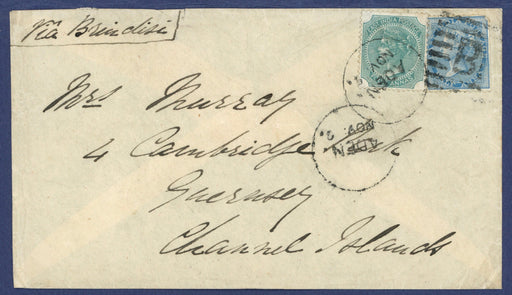 Via Brindisi
EAST INDIA POSTAGE
ADEN
NOV
Mrs Murray
ADEN
NOV
4 Cambridge Park
Guernsey
Channel Islands